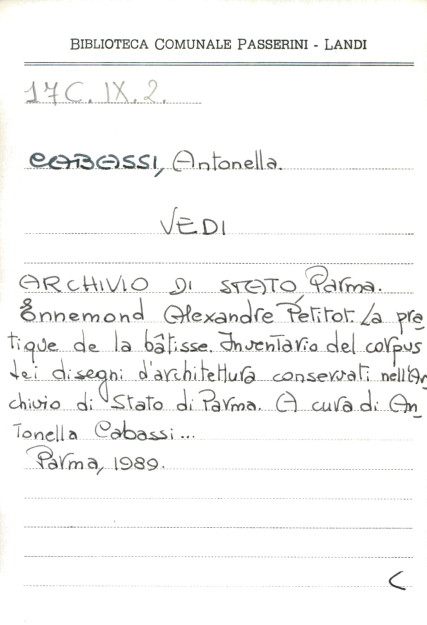 BIBLIOTECA COMUNALE PASSERINI - LANDI
17C. IX. 2.
CABASSI, Antonella.
VEDI
ARCHIVIO DI STATO, Parma.
Ennemond Alexandre Petitot. La pra
tique de la bâtisse. Inventario del corpus
dei disegni d'architettura conservati nell'Ar
chivio di Stato di Parma. A cura di An
tonella Cabassi...
Parma, 1989.
C